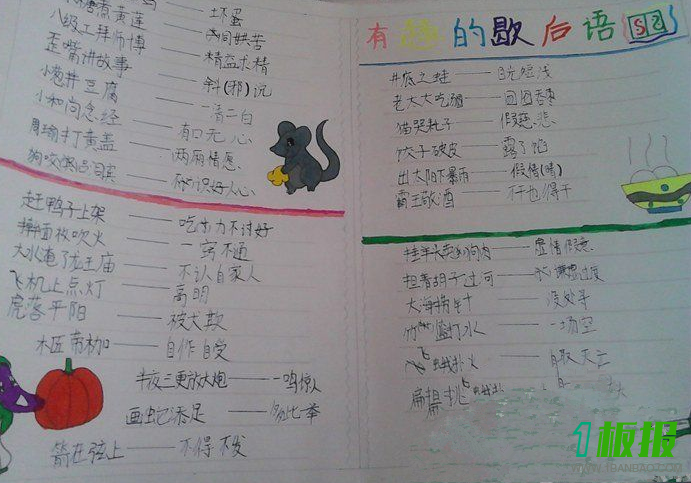 煮黄莲——苦
八级工拜师博——精益求精
歪嘴讲故事——斜(邪)说
小葱拌豆腐——一清二白
小和尚念经——有口无心
周瑜打黄盖——两厢情愿
狗咬吕洞宾——不识好人心
赶鸭子上架——吃力不讨好
擀面杖吹火——一窍不通
大水淹了龙王庙——不认自家人
飞机上点灯——高明
虎落平阳——被犬欺
木匠带枷——自作自受
半夜三更放大炮——一鸣惊人
画蛇添足——多此一举
箭在弦上——不得不发
有趣的歇后语
井底之蛙——目光短浅
老太太吃——
猫哭耗子——假慈悲
饺子破皮——露了馅
出太阳下暴雨——假情(晴)
霸王敬酒——不干也得干
挂羊头卖狗肉——虚情假意
担着胡子过河——过度
大海捞针——没处寻
竹篮打水——一场空
飞蛾扑火——自取灭亡
扁担挑
1板报
WWW.1BANBAO.COM